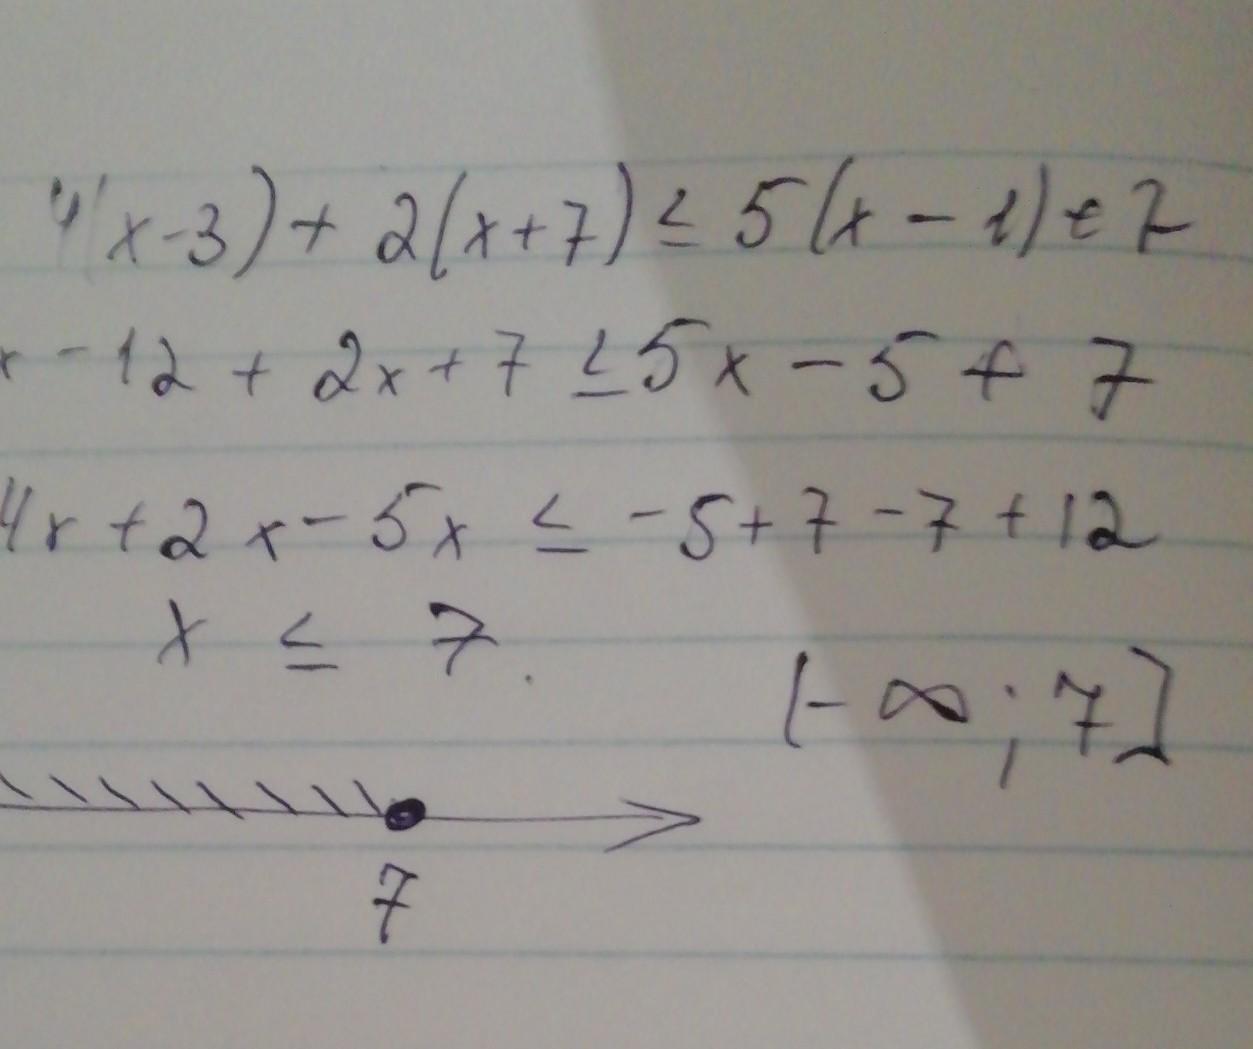 4(x-3) + 2(x+7) ≤ 5(x - 1) + 7
x - 12 + 2x + 7 ≤ 5x - 5 + 7
4x + 2x - 5x ≤ -5 + 7 - 7 + 12
x ≤ 7.
(-∞; 7]
7